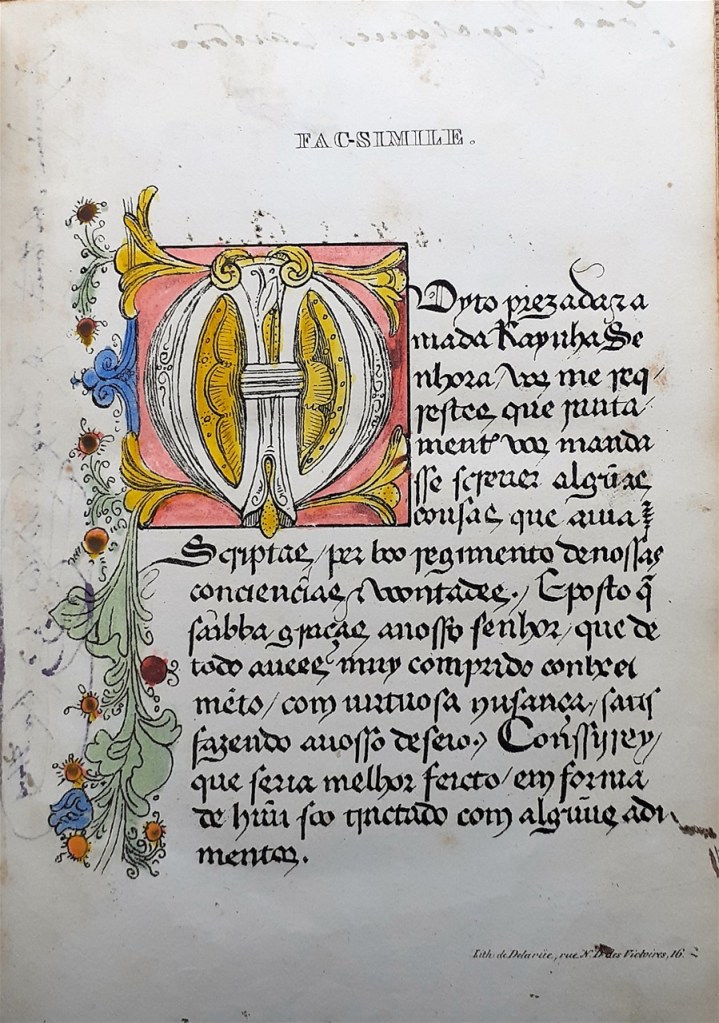 FAC-SIMILE.
Muyto prezada z a
mada Raynha Se
nhora / vos me req
restes que junta
mente vos manda
sse screver algũas
cousas que avia
Scriptas / per boo regimento de nossas
conciencias, e voontades. / E posto q̃
saibba, graças a nosso senhor, que de
todo avees muy comprido conhxei
mẽto / com virtuosa husança, satis
fazendo a vosso deseio. / Conssiirey /
que seria melhor feicto / em forma
de hũu soo tractado com algũus adi
mentos.
Lith: de Delarüe, rue N. D. des Victoires, 16.